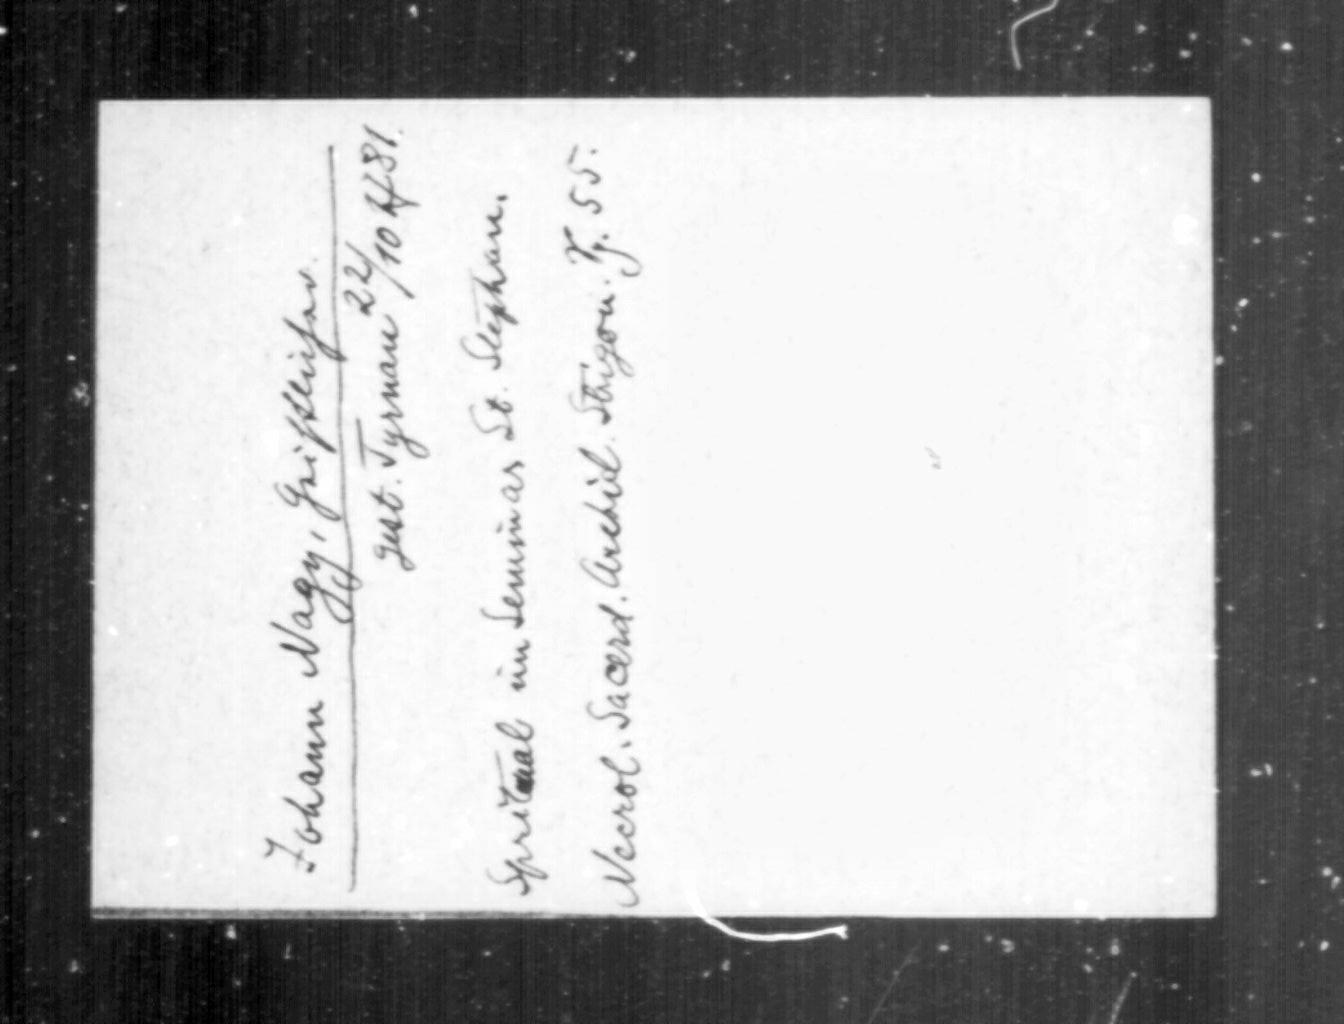 Johann Nagy, Geistlicher.
gest. Tyrnau 22/10 1781.
Spritual im Seminar St. Stephan.
Necrol. Sacerd. Archid. Strigon. Pg. 55.